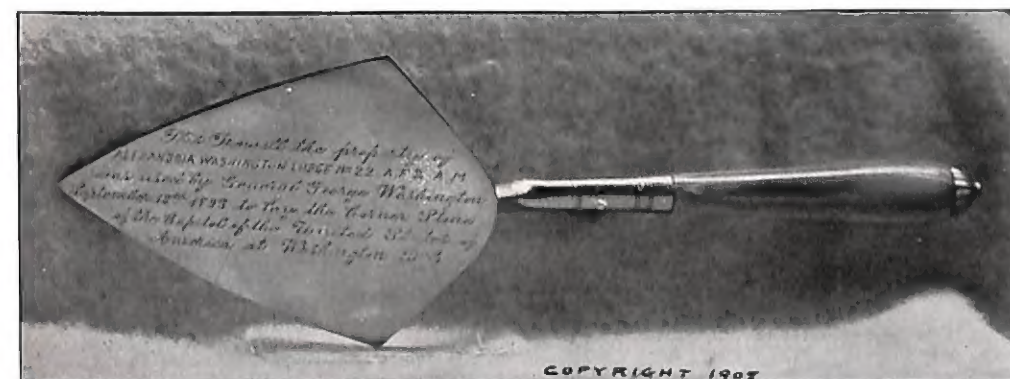 This Trowell the property of
ALEXANDRIA WASHINGTON LODGE No 22 A.F. & A.M
was used by General George Washington
September 18th 1893 to lay the Corner Stone
of the Capitol of the United States of
America at Washington
COPYRIGHT 1908